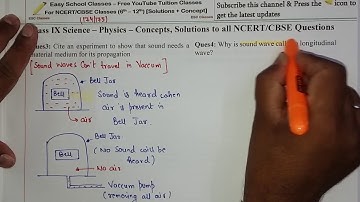 Easy School Classes - Free YouTube Tuition Classes
For NCERT/CBSE Classes (6th - 12th) [Solutions + Concept]
Subscribe this channel & Press the
icon to
get the latest updates
ass IX Science – Physics – Concepts, Solutions to all NCERT/CBSE Questions
Ques3: Cite an experiment to show that sound needs a
material medium for its propagation
[Sound waves Can't travel in Vaccum]
Bell Jar
Bell
Sound is heard when
air is present in
Bell Jar.
air
Bell Jar
Bell
(No Sound will be
heard)
No air
Vaccum pump
(removing all air)
Ques4: Why is sound wave call
longitudinal
wave?